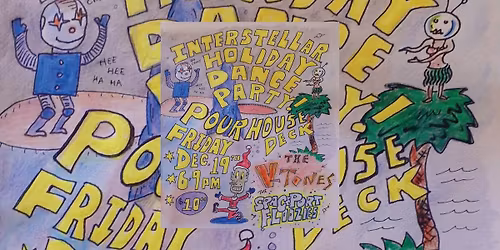 INTERSTELLAR
HOLIDAY
DANCE
PARTY!
HEE
HEE
HA HA
POURHOUSE
DECK
FRIDAY
DEC. 19TH
6-9 PM
$10
THE
V-TONES
THE
SPACEPORT
FLOOZIES